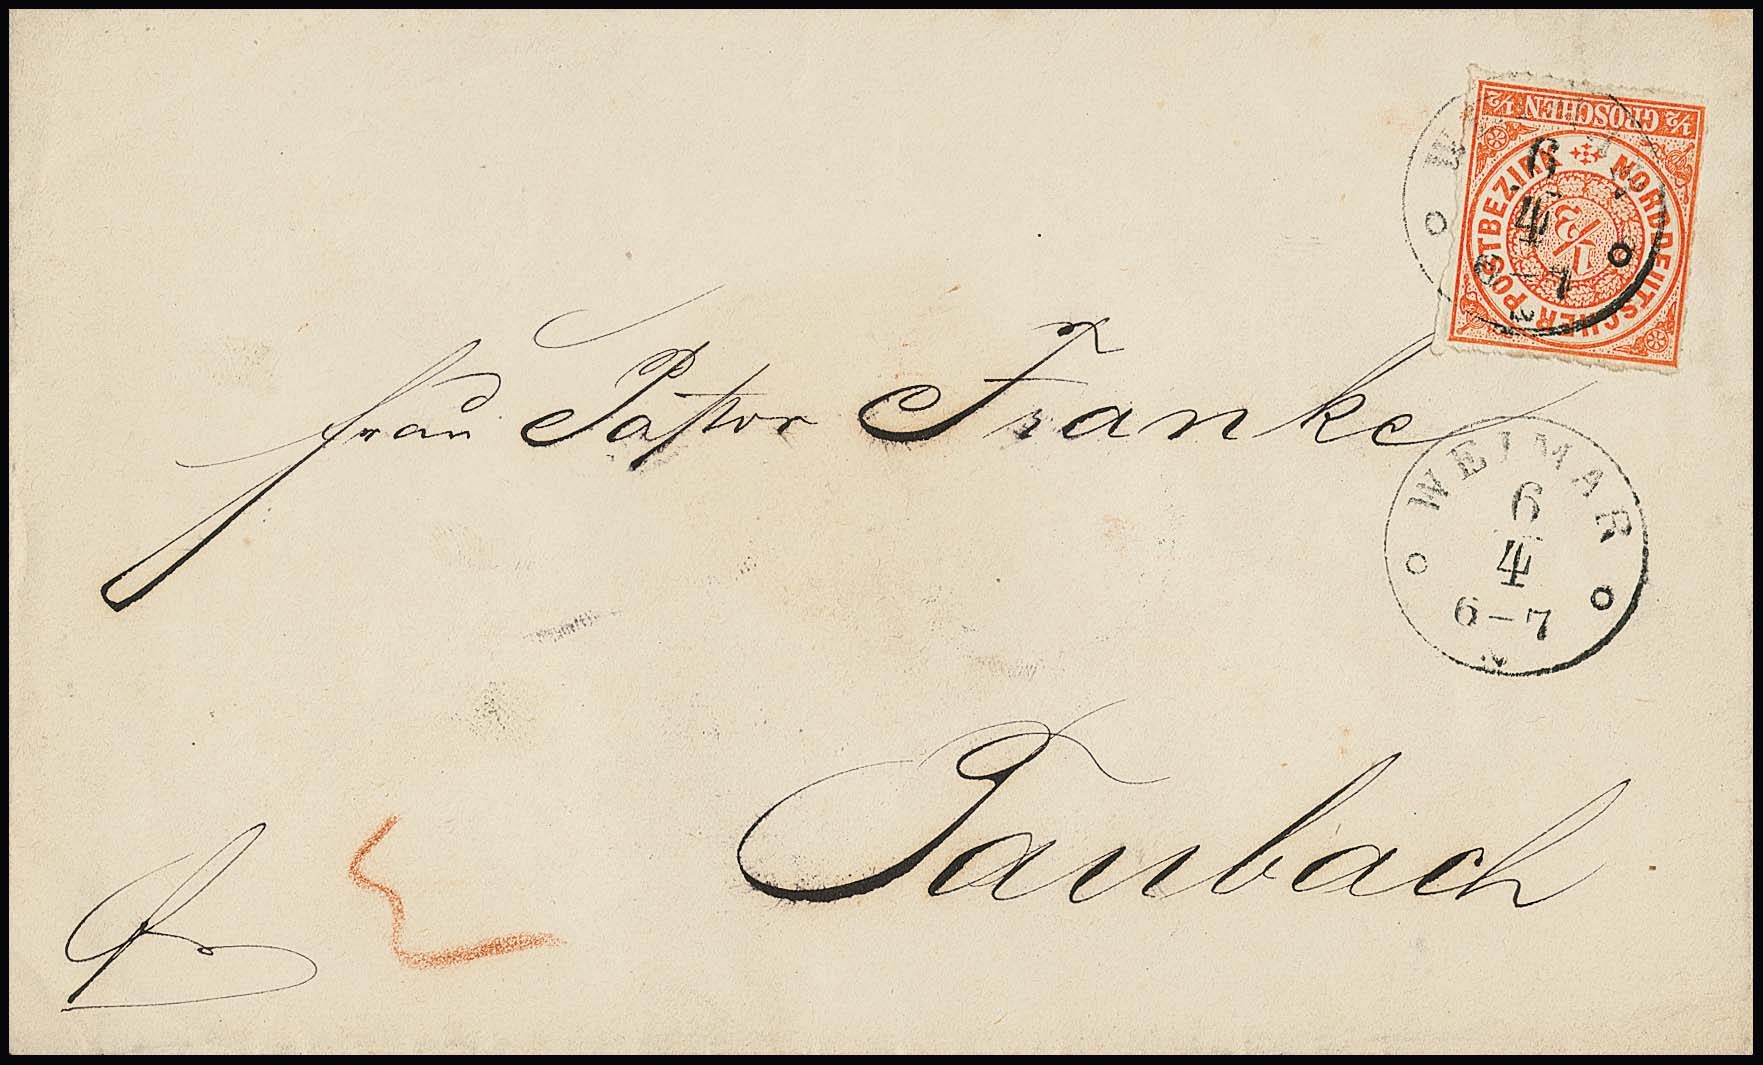 ½ GROSCHEN ½
NORDDEUTSCHER POSTBEZIRK
1/2
6
4
-7
frau Pastor Franke
WEIMAR
6
4
6-7
Taubach
fr